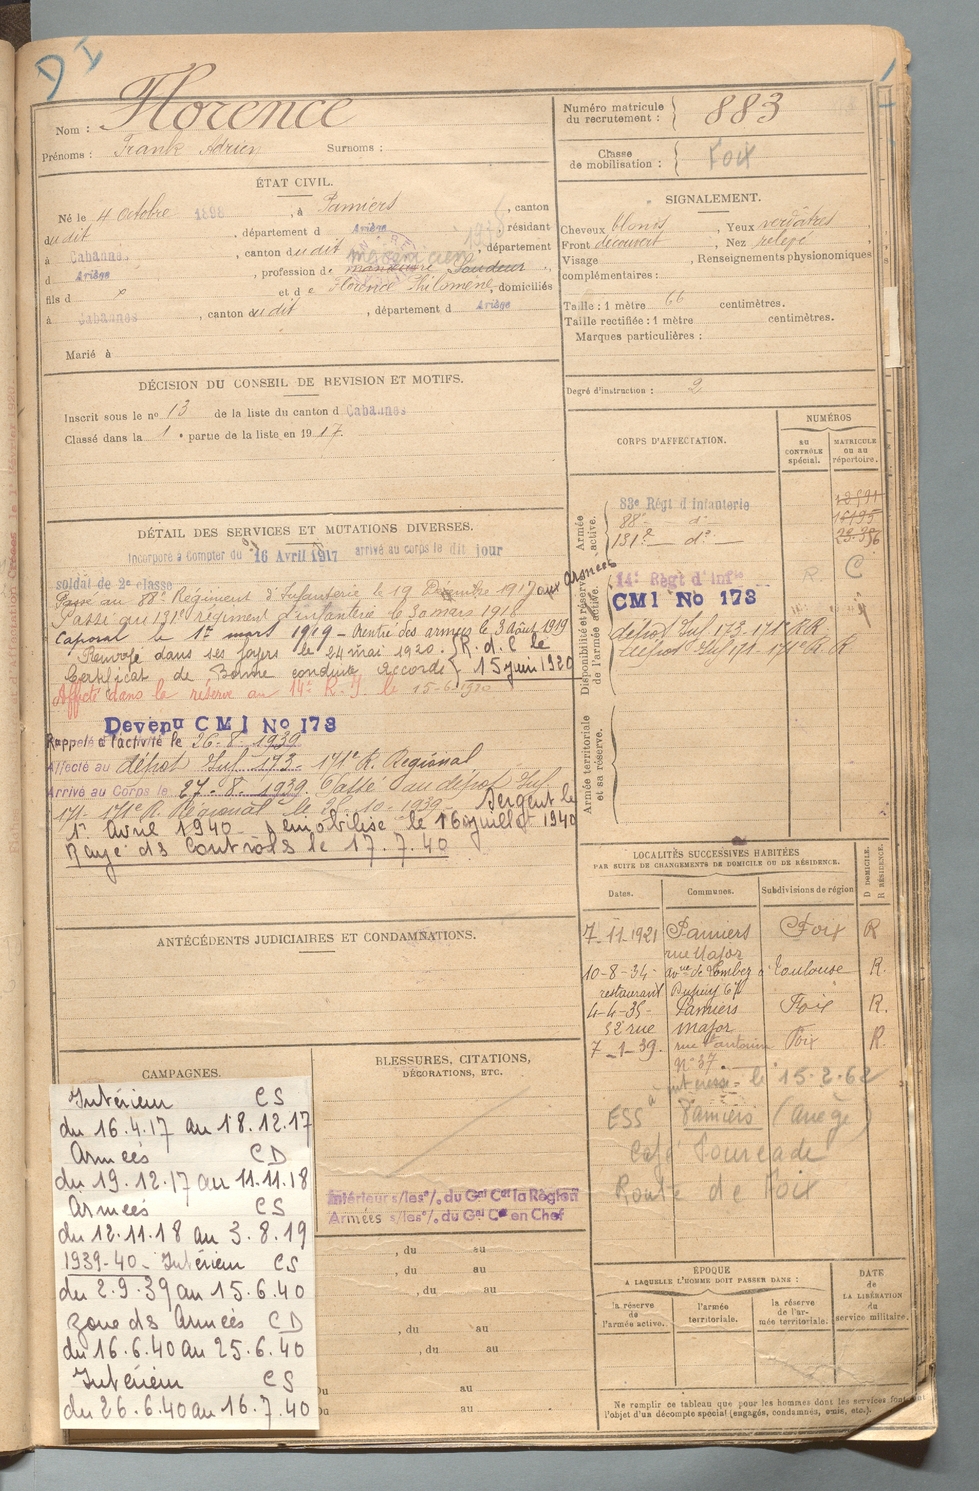 D I
Nom : Florence
Prénoms : Frank Adrien Surnoms :
Numéro matricule du recrutement : 883
Classe de mobilisation : Foix
ÉTAT CIVIL.
Né le 4 Octobre 1898, à Pamiers, canton
dudit, département d Ariège, résidant
à Cabannes, canton dudit, département
d Ariège, profession de mécanicien manœuvre Soudeur,
fils d x et de Florence Philomène, domiciliés
à Cabannes, canton dudit, département d Ariège
Marié à
SIGNALEMENT.
Cheveux blonds, Yeux verdâtres
Front découvert, Nez relevé
Visage, Renseignements physionomiques
complémentaires :
Taille : 1 mètre 66 centimètres.
Taille rectifiée : 1 mètre centimètres.
Marques particulières :
Degré d'instruction : 2
DÉCISION DU CONSEIL DE REVISION ET MOTIFS.
Inscrit sous le no 13 de la liste du canton d Cabannes
Classé dans la 1e partie de la liste en 1917.
DÉTAIL DES SERVICES ET MUTATIONS DIVERSES.
Incorporé à compter du 16 Avril 1917 arrivé au corps le dit jour
soldat de 2e classe
Passé au 88e Régiment d'Infanterie le 19 Décembre 1917 aux Armées
Passé au 131e régiment d'infanterie le 30 mars 1918
Caporal le 1er mars 1919 - rentré des armées le 3 Août 1919
Renvoyé dans ses foyers le 24 mai 1920. R. d. C le
Certificat de Bonne conduite accordé 15 juin 1920
Affecté dans la réserve au 14e R. I. le 15-6-1920
Devenu CMI No 173
Rappelé à l'activité le 26-8-1939
Affecté au dépôt Inf 173 - 171e R. Régional
Arrivé au Corps le 27-8-1939. Passé au dépôt Inf
171 - 171e R. Régional le 28-10-1939 - Sergent le
1er Avril 1940 - Démobilisé le 16 juillet 1940
Rayé ds Contrôls le 17.7.40
CORPS D'AFFECTATION.
NUMÉROS
AU CONTRÔLE spécial.
MATRICULE ou au répertoire.
Armée active.
83e Régt d'infanterie 12591
88e d° 15195
131e d° 23.396
Disponibilité et réserve de l'armée active.
14e Régt d'Infie R C
CMI No 173
dépôt Inf 173 - 171e R.R.
dépôt Inf 171 - 171e R R
Armée territoriale et sa réserve.
LOCALITÉS SUCCESSIVES HABITÉES
PAR SUITE DE CHANGEMENTS DE DOMICILE OU DE RÉSIDENCE.
Dates. Communes. Subdivisions de région D DOMICILE. R RÉSIDENCE.
7-11-1921 Pamiers Foix R
rue Major
10-8-34 - avue de Lombez à Toulouse R.
restaurant Dupuy 67
4-4-35 - Pamiers Foix R.
52 rue Major
7-1-39. rue St antoine Foix R.
N° 37
à intéressé - le 15-2-62
ESS à Pamiers (Ariège)
Café Fourcade
Route de Foix
ANTÉCÉDENTS JUDICIAIRES ET CONDAMNATIONS.
CAMPAGNES.
Intérieur CS
du 16.4.17 au 18.12.17
Armées CD
du 19.12.17 au 11.11.18
Armées CS
du 12.11.18 au 3.8.19
1939-40 - Intérieur CS
du 2.9.39 au 15.6.40
Zone ds Armées CD
du 16.6.40 au 25.6.40
Intérieur CS
du 26.6.40 au 16.7.40
BLESSURES, CITATIONS,
DÉCORATIONS, ETC.
Intérieur s/les o/o du Gal Ct la Région
Armées s/les o/o du Gal Ct en Chef
, du au
, du au
, du au
, du au
, du au
Du au
Du au
ÉPOQUE
A LAQUELLE L'HOMME DOIT PASSER DANS :
la réserve de l'armée active.
l'armée territoriale.
la réserve de l'armée territoriale.
DATE de LA LIBÉRATION du service militaire.
Ne remplir ce tableau que pour les hommes dont les services font
l'objet d'un décompte spécial (engagés, condamnés, omis, etc.).